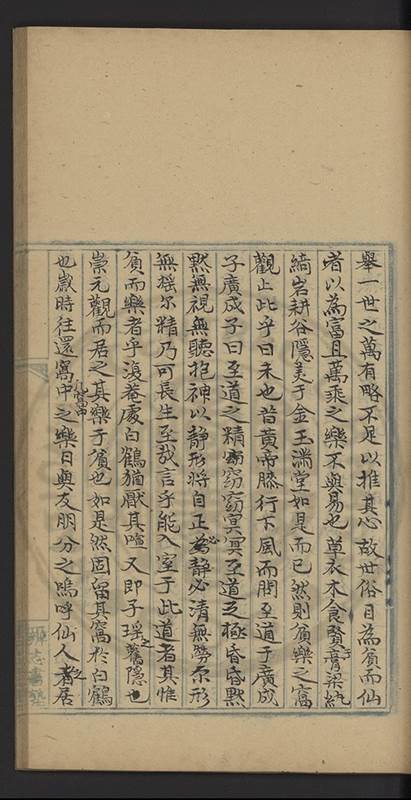 舉一世之萬有略不足以推其心故世俗目為貧而仙
者以為富且萬乘之樂不與易也草衣木食賢于膏梁紈
綺岩耕谷隱美于金玉滿堂如是而已然則貧樂之窩
觀止此乎曰未也昔黃帝膝行下風而問至道于廣成
子廣成子曰至道之精窈窈冥冥至道之極昏昏默
默無視無聽抱神以静形將自正必静必清無勞尔形
無摇尔精乃可長生至哉言乎能入室于此道者其惟
貧而樂者乎復菴處白鶴猶厭其喧又即子瑶之舊隱
崇元觀而居之其樂于貧也如是然固留其窩於白鶴
也歲時往還窩中之凡窩中樂日與友朋分之嗚呼仙人之居